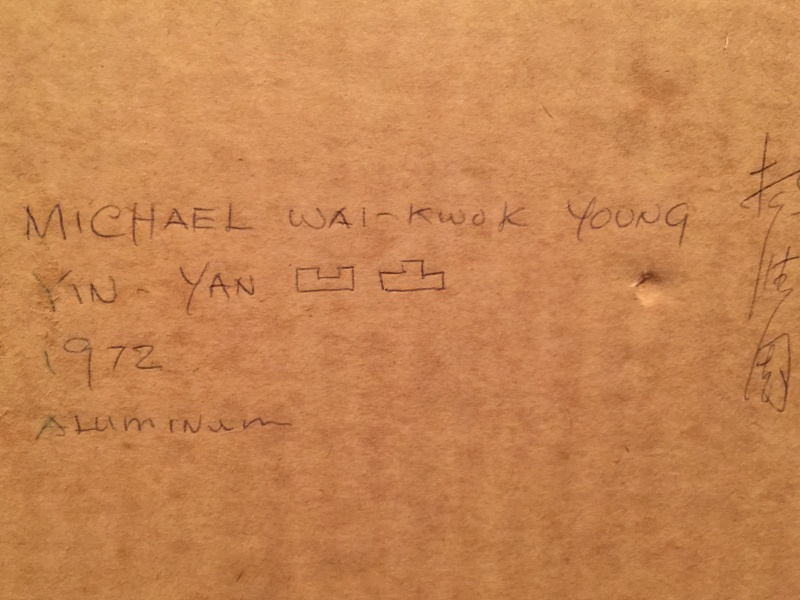 MICHAEL WAI-KWOK YOUNG
YIN-YAN
1972
ALUMINUM